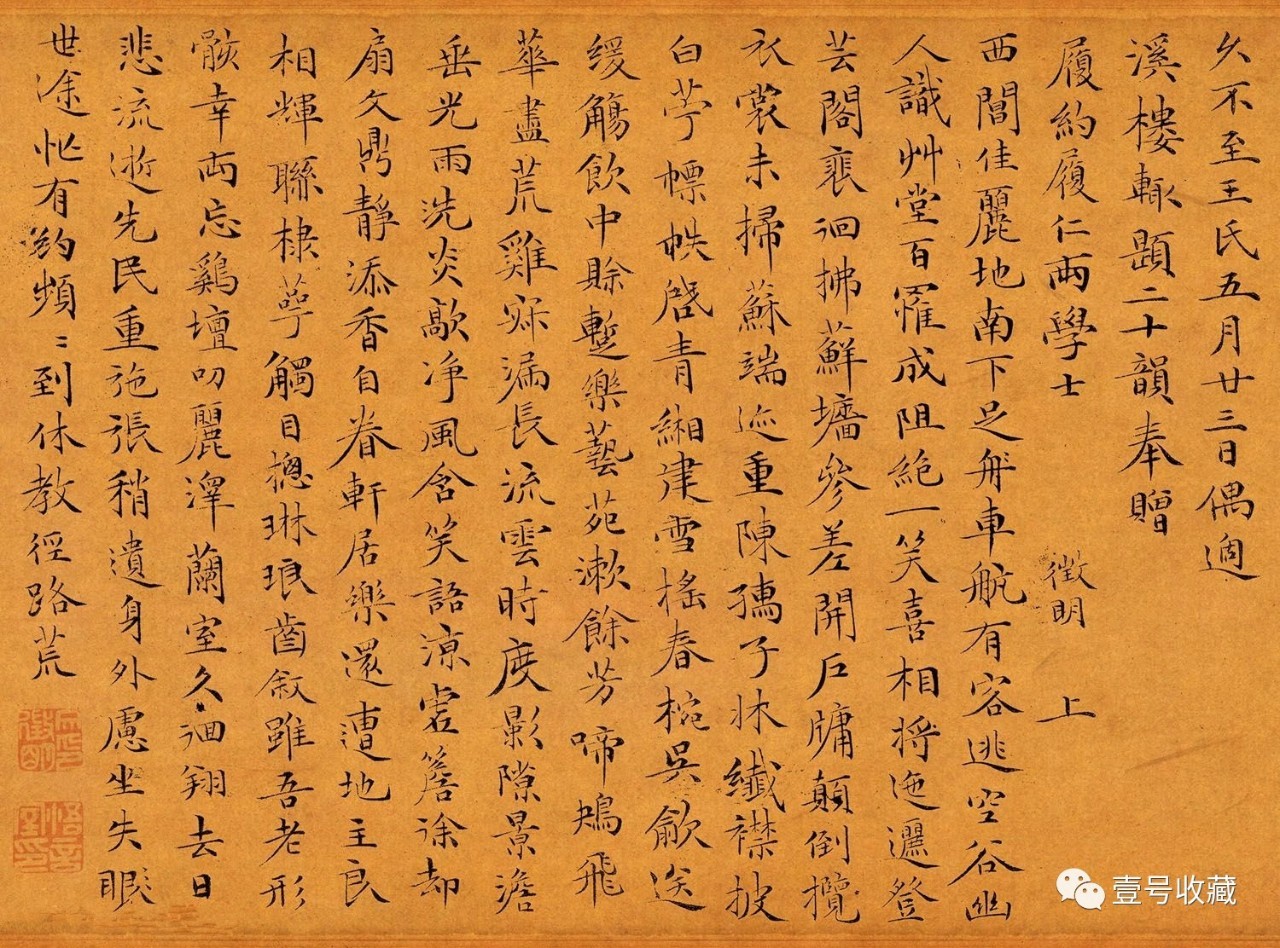 久不至王氏五月廿三日偶過
溪樓輒題二十韻奉贈
履約履仁兩學士 徵明 上
西閶佳麗地南下足舟車航有客逃空谷幽
人識艸堂百罹成阻絕一笑喜相將迤邐登
芸閣裵徊拂蘚墻參差開戶牖顛倒攬
衣裳未掃蘇端迹重陳孺子牀纖襟披
白苧幖帙啓青緗建雪搖春椀吳歈送
緩觴飲中賒蹔樂藝苑漱餘芳啼鴂飛
華盡荒雞寐漏長流雲時度影隙景澹
垂光雨洗炎歊凈風含笑語涼虛簷徐却
扇文鼎靜添香自眷軒居樂還遭地主良
相輝聯棣萼觸目摠琳琅齒敘雖吾老形
骸幸兩忘鷄壇叨麗澤蘭室久徊翔去日
悲流逝先民重弛張稍遺身外慮坐失眼
世途忙有約頻〻到休教徑路荒
壹号收藏